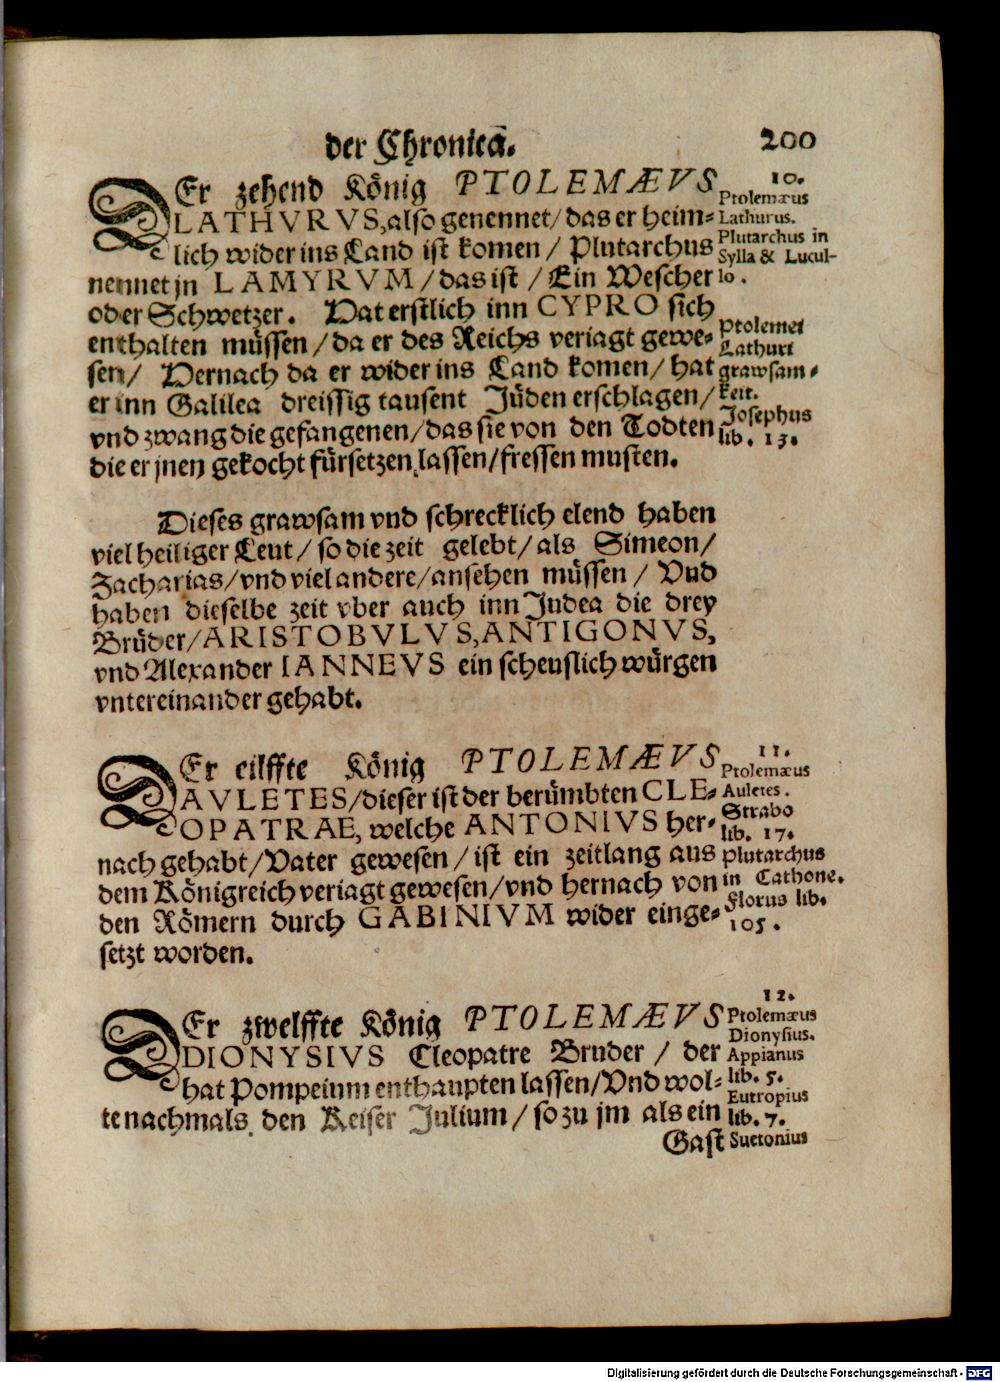 der Chronica.
200
DEr zehend König PTOLEMÆVS
LATHVRVS, also genennet/das er heim-
lich wider ins Land ist komen / Plutarchus
nennet jn LAMYRVM/das ist / Ein Wescher
oder Schwetzer. Hat erstlich inn CYPRO sich
enthalten müssen/da er des Reichs veriagt gewe-
sen/ Hernach da er wider ins Land komen/hat
er inn Galilea dreissig tausent Jüden erschlagen/
vnd zwang die gefangenen/das sie von den Todten
die er jnen gekocht fürsetzen lassen/fressen musten.
10.
Ptolemæus
Lathurus.
Plutarchus in
Sylla & Lucul-
lo.
Ptolemei
Lathuri
grawsam-
keit.
Josephus
lib. 13.
Dieses grawsam vnd schrecklich elend haben
viel heiliger Leut/so die zeit gelebt/als Simeon/
Zacharias/vnd viel andere/ansehen müssen / Vnd
haben dieselbe zeit vber auch inn Judea die drey
Brüder/ARISTOBVLVS, ANTIGONVS,
vnd Alexander IANNEVS ein scheuslich würgen
vntereinander gehabt.
DEr eilffte König PTOLEMÆVS
AVLETES/dieser ist der berümbten CLE-
OPATRAE, welche ANTONIVS her-
nach gehabt/Vater gewesen/ist ein zeitlang aus
dem Königreich veriagt gewesen/vnd hernach von
den Römern durch GABINIVM wider einge-
setzt worden.
11.
Ptolemæus
Auletes.
Strabo
lib. 17.
Plutarchus
in Cathone.
Florus lib.
105.
DEr zwelffte König PTOLEMÆVS
DIONYSIVS Cleopatre Bruder / der
hat Pompeium enthaupten lassen/Vnd wol-
te nachmals den Keiser Julium/so zu jm als ein
Gast
12.
Ptolemæus
Dionysius.
Appianus
lib. 5.
Eutropius
lib. 7.
Suetonius
Digitalisierung gefördert durch die Deutsche Forschungsgemeinschaft - DFG